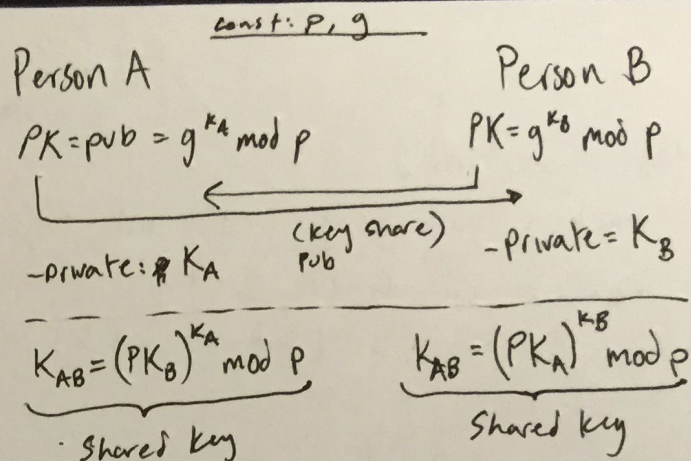 const: p, g
Person A
Person B
PK = pub = g^KA mod p
PK = g^KB mod p
(key share)
pub
-private: KA
-private = KB
KAB = (PKB)^KA mod p
KAB = (PKA)^KB mod p
Shared key
Shared key